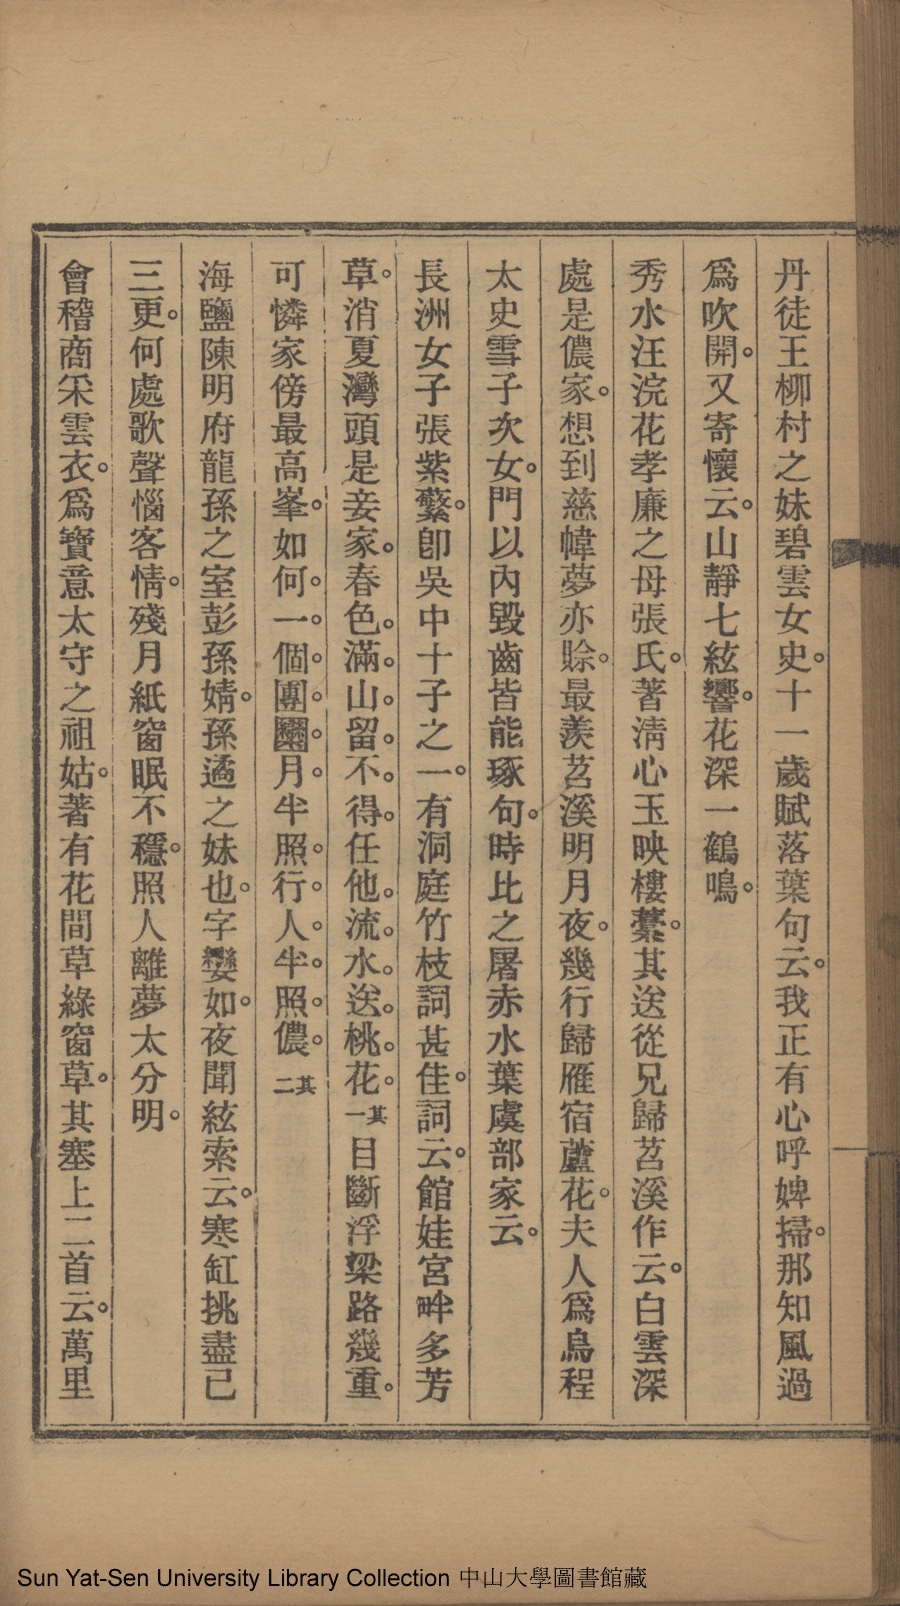 丹徒王柳村之妹碧雲女史。十一歲賦落葉句云。我正有心呼婢掃。那知風過
爲吹開。又寄懷云。山靜七絃響。花深一鶴鳴。
秀水汪浣花孝廉之母張氏。著淸心玉映樓藁。其送從兄歸苕溪作云。白雲深
處是儂家。想到慈幃夢亦賒。最羨苕溪明月夜。幾行歸雁宿蘆花。夫人爲烏程
太史雪子次女。門以內毀齒皆能琢句。時比之屠赤水葉虞部家云。
長洲女子張紫蘩。卽吳中十子之一。有洞庭竹枝詞甚佳。詞云。館娃宮畔多芳
草。消夏灣頭是妾家。春色。滿。山。留。不。得。任他。流。水。送。桃。花。其一目斷浮梁路幾重。
可憐家傍最高峯。如何。一。個。團。圞。月。半照。行。人。半。照。儂。其二
海鹽陳明府龍孫之室彭孫婧。孫遹之妹也。字孌如。夜聞絃索云。寒缸挑盡已
三更。何處歌聲惱客情。殘月紙窗眠不穩。照人離夢太分明。
會稽商采雲衣。爲寶意太守之祖姑。著有花間草綠窗草。其塞上二首云。萬里
Sun Yat-Sen University Library Collection 中山大學圖書館藏